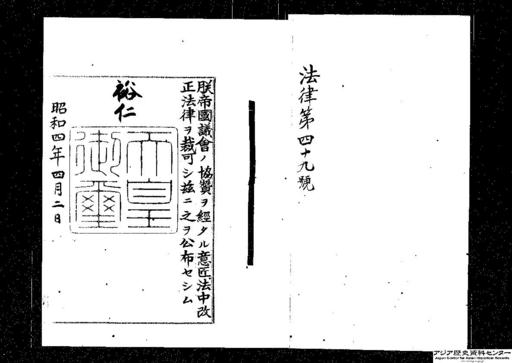 法律第四十九號
朕帝國議會ノ協賛ヲ經タル意匠法中改
正法律ヲ裁可シ茲ニ之ヲ公布セシム
裕仁
天皇御璽
昭和四年四月二日
アジア歴史資料センター
Japan Center for Asian Historical Records